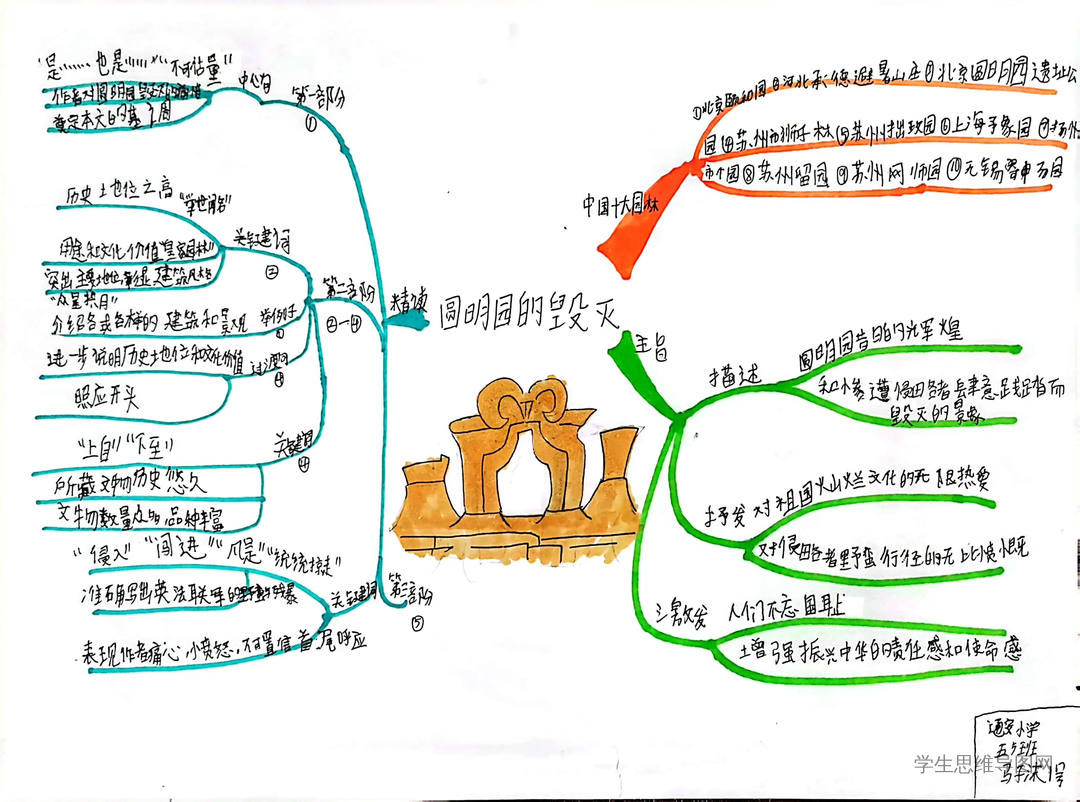 圆明园的毁灭
精读
第一部分
①
中心句
"是……也是……""不可估量"
作者对圆明园毁灭的痛惜
奠定本文的基调
第二部分
②—④
关键词
②
历史土地位之高
"举世闻名"
用途和文化价值"皇家园林"
突出主要地位,彰显建筑风格
"众星拱月"
介绍各式各样的建筑和景观
举例句子
进一步说明历史土地位和文化价值
过渡句
④
照应开头
关键词
④
"上自""下至"
所藏文物历史悠久
文物数量众多,品种丰富
第三部分
⑤
关键词
"侵入""闯进""凡是""统统掠走"
准确写出英法联军的野蛮残暴
表现作者痛心、愤怒,不可置信 首尾呼应
中国十大园林
①北京颐和园②河北承德避暑山庄③北京圆明园遗址公
园④苏州市狮子林⑤苏州拙政园⑥上海予象园⑦扬州
市个园⑧苏州留园⑨苏州网师园⑩无锡寄申万园
主旨
描述
圆明园昔日的光军煌
毁灭的景象
抒发
对祖国火山烂文化的无限热爱
对侵田各者野蛮行径的无比愤恨
激发
人们不忘国耻
增强振兴中华的责任感和使命感
通安小学
五5班
学生思维导图网